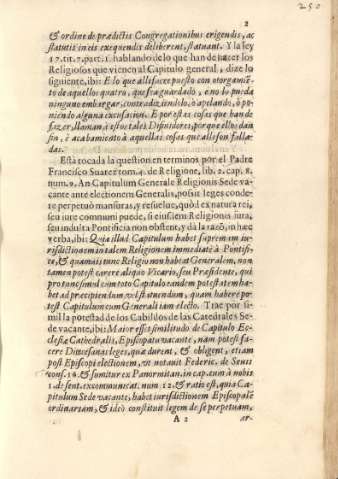 250
2
& ordine de prædictis Congregationibus erigendis, ac
statutis in eis exequendis deliberent, statuant. Y la ley
17. tit. 7. part. 1. hablando de lo que han de hazer los
Religiosos que vienen al Capitulo general, dize lo
siguiente, ibi: E lo que alli fuere puesto con otorgamiẽ-
to de aquellos quatro, que sea guardado, e no lo pueda
ninguno embargar, contradiziendolo, ò apelando, ò po-
niendo alguna escusacion. E por estas cosas que han de
fazer, llaman à estos tales Difinidores, porque ellos dan
fin, è acabamiento à aquellas cosas que alli son falla-
das.
Està tocada la question en terminos por el Padre
Francisco Suarez tom. 4. de Religione, lib. 2. cap. 8.
num. 9. An Capitulum Generale Religionis Sede va-
cante ante electionem Generalis, possit leges conde-
re perpetuò mansuras, y resuelue, quòd ex natura rei,
seu iure communi puede, si eiusdem Religionis iura,
seu indulta Pontificia non obstent, y dà la razõ, in hæc
verba, ibi: Quia illud Capitulum habet supremam iu-
risdictionem in talem Religionem immediatè à Pontifi-
ce, & quamuis tunc Religio non habeat Generalem, non
tamen potest carere aliquo Vicario, seu Præsidente, qui
pro tunc simul cum toto Capitulo eandem potestatem ha-
bet ad præcipiendum vel statuendum, quam habere po-
test Capitulum cum Generali iam electo. Trae por si-
mil la potestad de los Cabildos de las Catedrales Se-
de vacante, ibi: Maior est similitudo de Capitulo Ec-
clesiæ Cathedralis, Episcopatu vacante, nam potest fa-
cere Diœcesanas leges, quæ durent, & obligent, etiam
post Episcopi electionem, vt notauit Federic. de Senis
cons. 14. & sumitur ex Panormitan. in cap. cum à nobis
1. de sent. excommunicat. num. 12. & ratio est, quia Ca-
pitulum Sede vacante, habet iurisdictionem Episcopalẽ
ordinariam, & ideò constituit legem de se perpetuam,
A 2
ar-